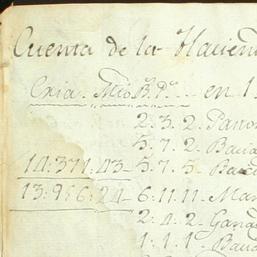 Cuenta de la Hacien
Cria. Mio. B. P. en 1
2. 3. 2. Pano
5. 7. 2. Bau
14: 371: 43 - 5. 7. 5. Ba
13. 9: 6: 24 - 6. 11. 11. Mar
2: 4. 2. Gana
1: 1. 1. Bau